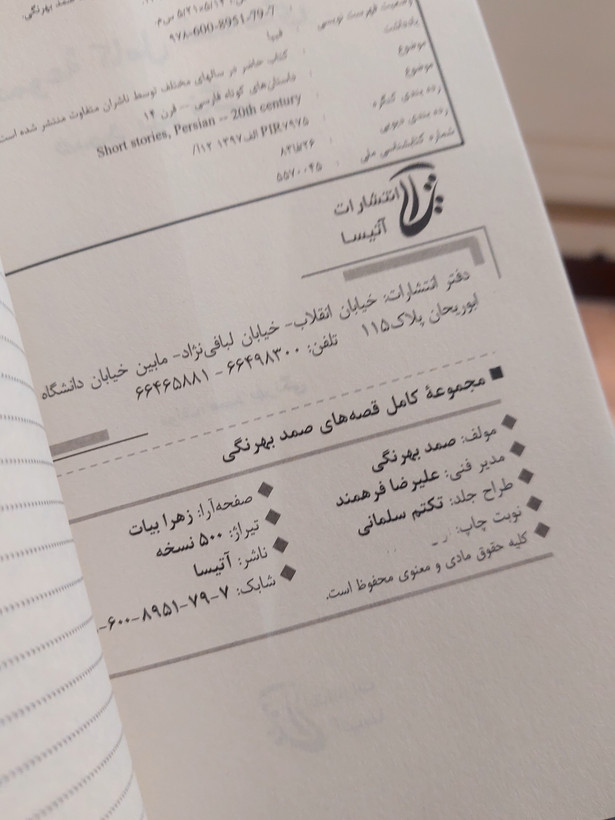 وضعیت فهرست نویسی : فیپا
۹۷۸-600-8951-79-7
یادداشت : کتاب حاضر در سالهای مختلف توسط ناشران متفاوت منتشر شده است
موضوع : داستان‌های کوتاه فارسی -- قرن ۱۴
موضوع : Short stories, Persian -- 20th century
رده بندی کنگره : PIR۷۹۷۵
رده بندی دیویی :
شماره کتابشناسی ملی : ۵۵۷۰۰۴۵
انتشارات
آتیسا
دفتر انتشارات: خیابان انقلاب- خیابان لبافی‌نژاد- مابین خیابان دانشگاه
ابوریحان پلاک۱۱۵ تلفن: ۶۶۴۹۸۳۰۰ - ۶۶۴۶۵۸۸۱
مجموعهٔ کامل قصه‌های صمد بهرنگی
مولف: صمد بهرنگی
مدیر فنی: علیرضا فرهمند
طراح جلد: تکتم سلمانی
نوبت چاپ:
کلیه حقوق مادی و معنوی محفوظ است.
صفحه‌آرا: زهرا بیات
تیراژ: ۵۰۰ نسخه
ناشر: آتیسا
شابک: ۷-۷۹-۸۹۵۱-۶۰۰-